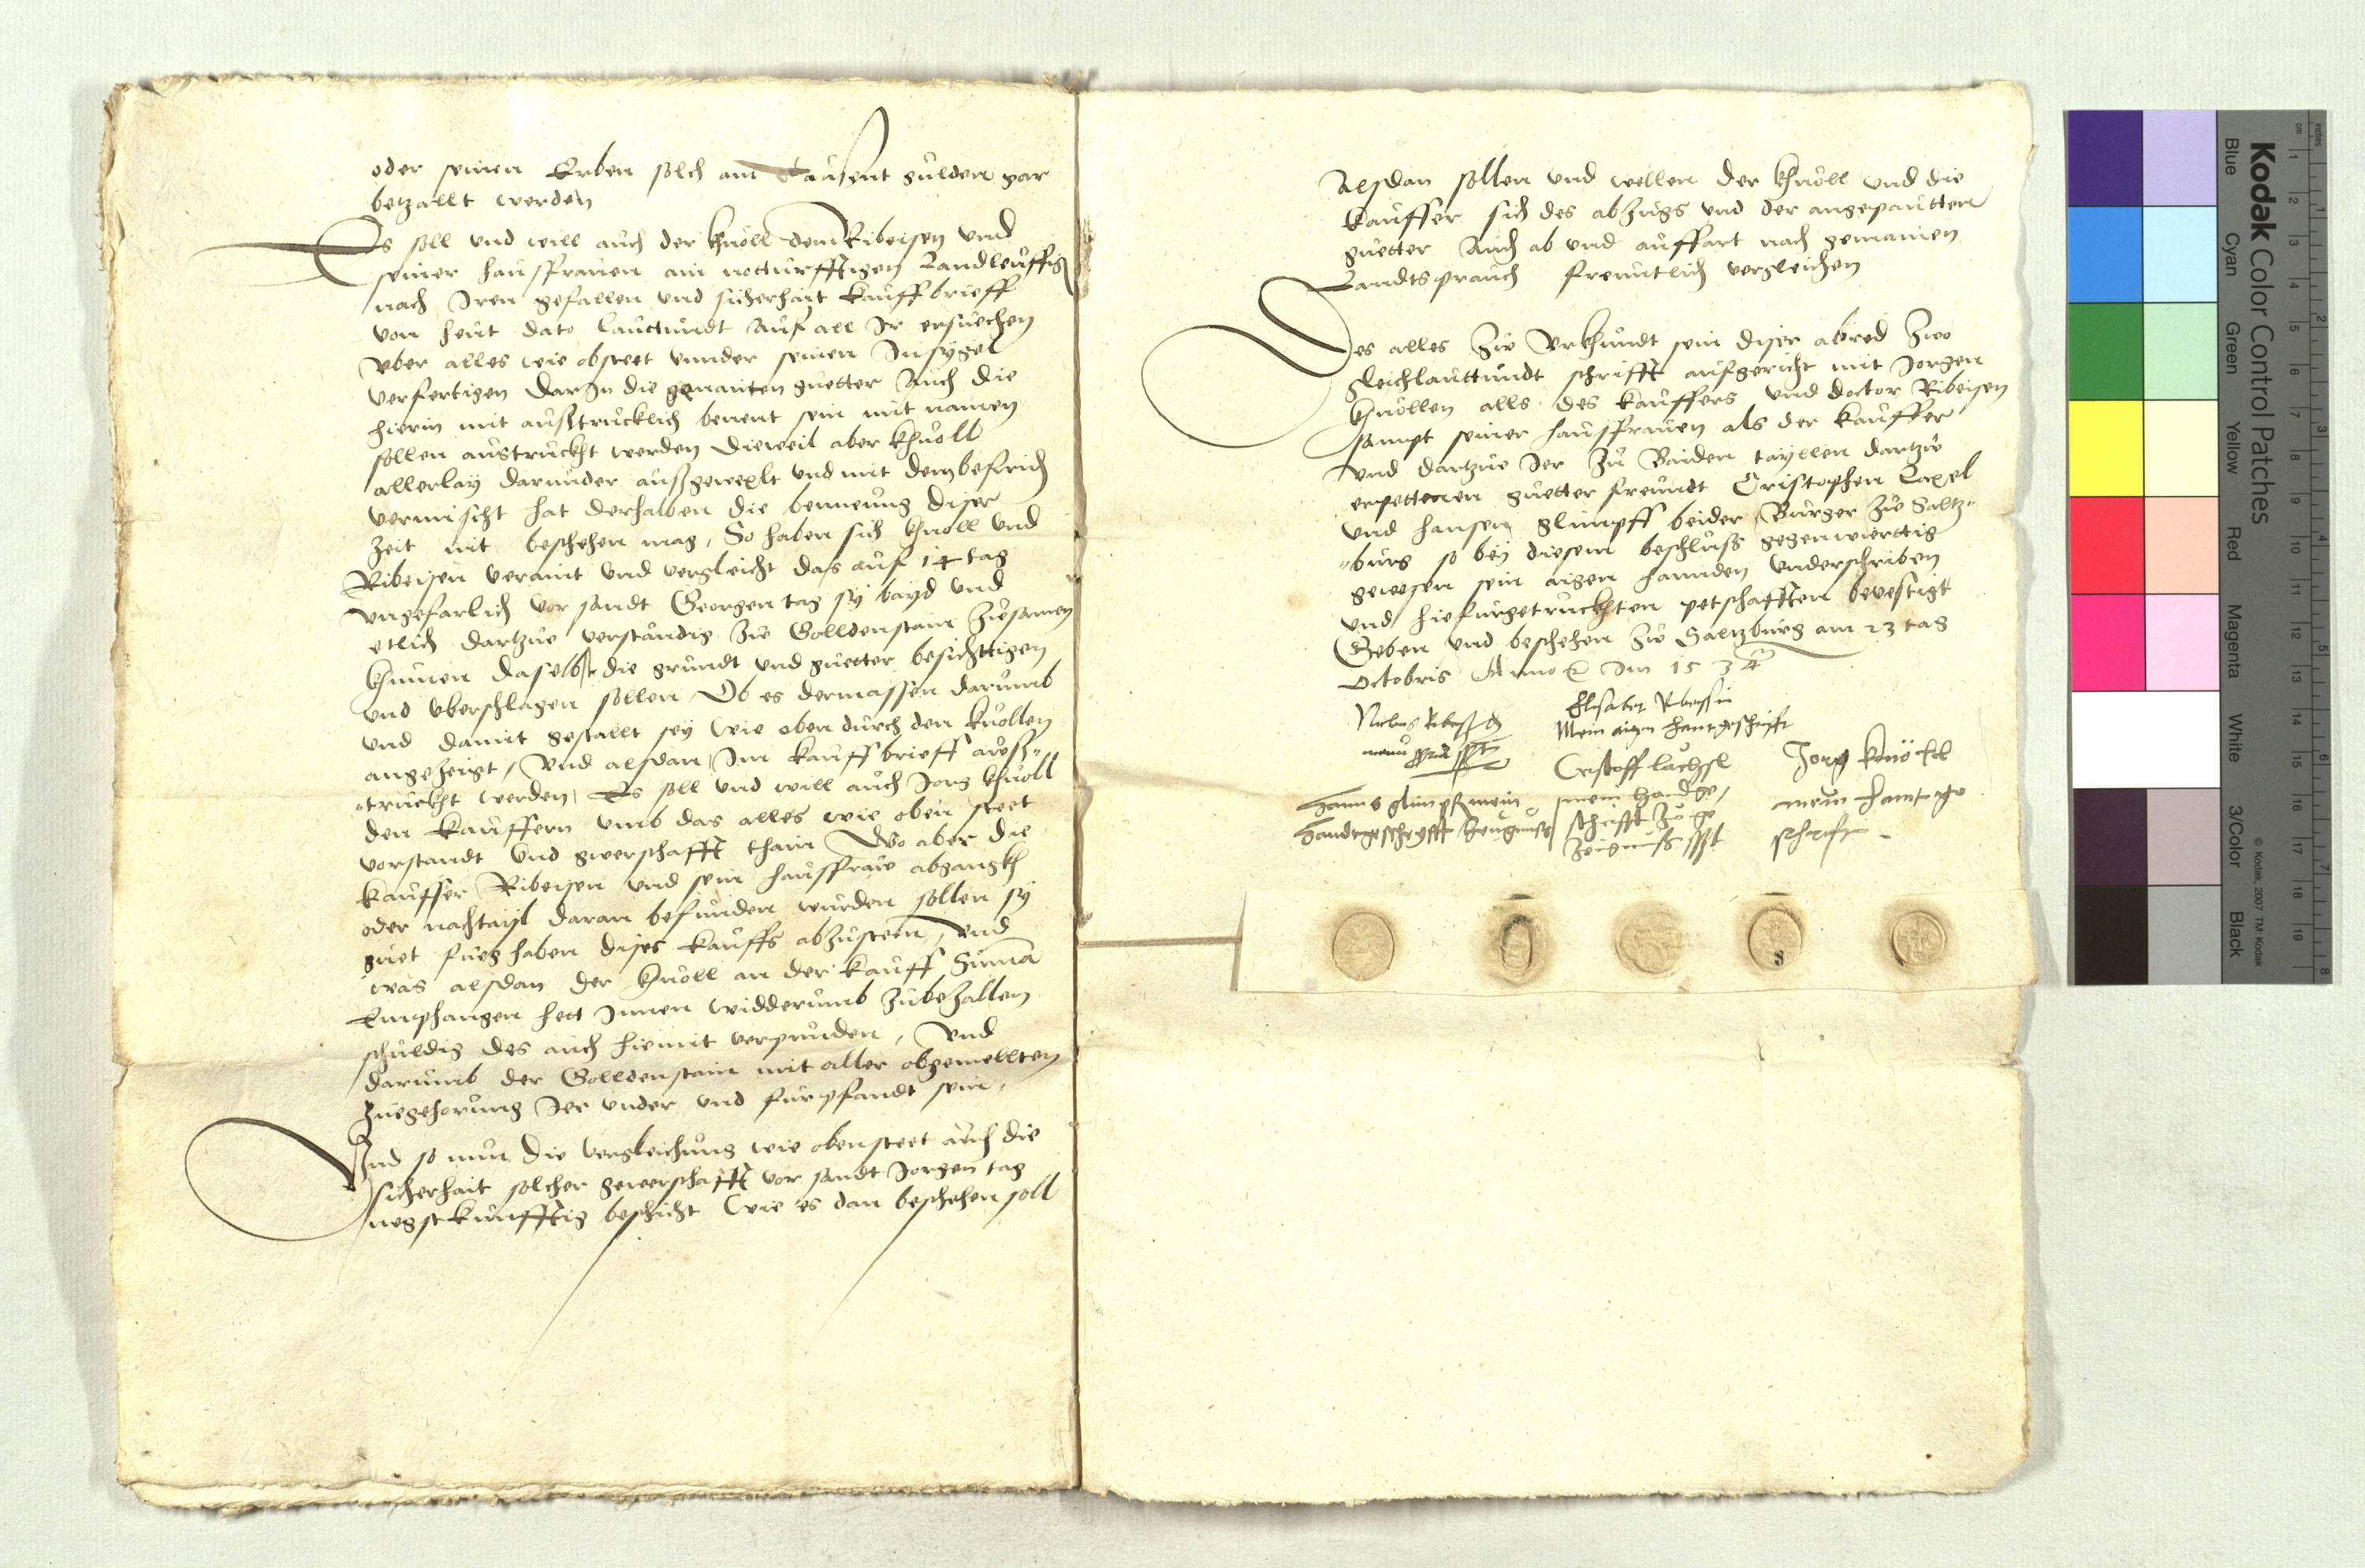 oder seinen Erben solch ain Tausent gulden gar
betzallt werden
Es soll vnd will auch der khnoll dem Ribeisen vnd
seiner hausfrauen ain notturfftigen Landleuffig
nach Iren gefallen vnd sicherhait kauffbrieff
von heut dato lauttundt auf all Ir ersuechen
vber alles wie obsteet vnnder seinen Insygel
verfertigen darIn die genanten guetter auch die
hierin nit austrucklich benent sein mit namen
sollen austruckht werden dieweil aber khnoll
allerlay darunder aussgewexlt vnd mit dem
vermischt hat derhalben die bennenung diser
Zeit nit beschehen mag, So haben sich khnoll vnd
Ribeisen veraint vnd vergleicht das auf 14 tag
vngefarlich vor sandt Georgen tag sy bayd vnd
etlich dartzue verstandig Zw Golldenstain zusamen
khumen daselbst die grundt vnd guetter besichttigen
vnd vberschlagen sollen Ob es dermassen darumb
vnd damit gestallt sey wie oben durch den knollen
angezeigt, Vnd alsdan Im kauffbrieff auss„
„truckht werden, Es soll vnd will auch Jorg khnoll
den kauffern vmb das alles wie oben steet
vorstandt vnd gwerschafft thain Wo aber die
kauffer Ribeisen vnd sein hausfraw abgangkh
oder nachtayl daran befunden wurden sollen sy
guet fueg haben dises kauffs abzusteen, Vnd
was alsdan der khnoll an der kauff Suma
Emphangen hett Innen widderumb zubezallen
schuldig des auch hiemit verpunden, Vnd
darumb der Golldenstain mit aller obgemellten
Zuegehorung Ier vnder vnd furpfandt sein,
Vnd so nun die vergleichung wie obensteet auch die
sicherhait solcher gewerschafft vor sandt Jorgen tag
negstkunfftig beschicht Wie es dan beschehen soll
Alsdan sollen vnd wellen der khnoll vnd die
kauffer sich des abzugs vnd der angepautten
guetter Auch ab vnd auffart nach gemainen
Landtsprauch freuntlich vergleichen
Des alles Zw Vrkhundt sein diser abred Zwo
gleichlauttundt schrifft aufgericht mit Jorgen
khnollen alls des kauffers vnd doctor Ribeisen
sampt seiner hausfrauen als der kauffer
vnd dartzue Ier Zu Baiden tayllen dartzw
erpettenen guetter freundt Cristophen Laxel
vnd hansen glimpff beider Burger Zw Saltz„
„burg so bey diesem beschluss gegenwierttig
gewesen sein aigen hannden vnderschriben
vnd hiefurgetruckhten petschafften bevestigt
Geben vnd beschehen Zw Saltzburg am 23 tag
Octobris Anno Im 1534
Niclas Ribeysen
manu
Elisabet Ribeisin
Mein aigen hantgeschrifft
Cristoff lachsl
mein handge,
schrifft zu ge
zeignuss
Jorg knöll
mein hantge
schrift
Hanns glimpf mein
handtgeschryfft Zeugnuss